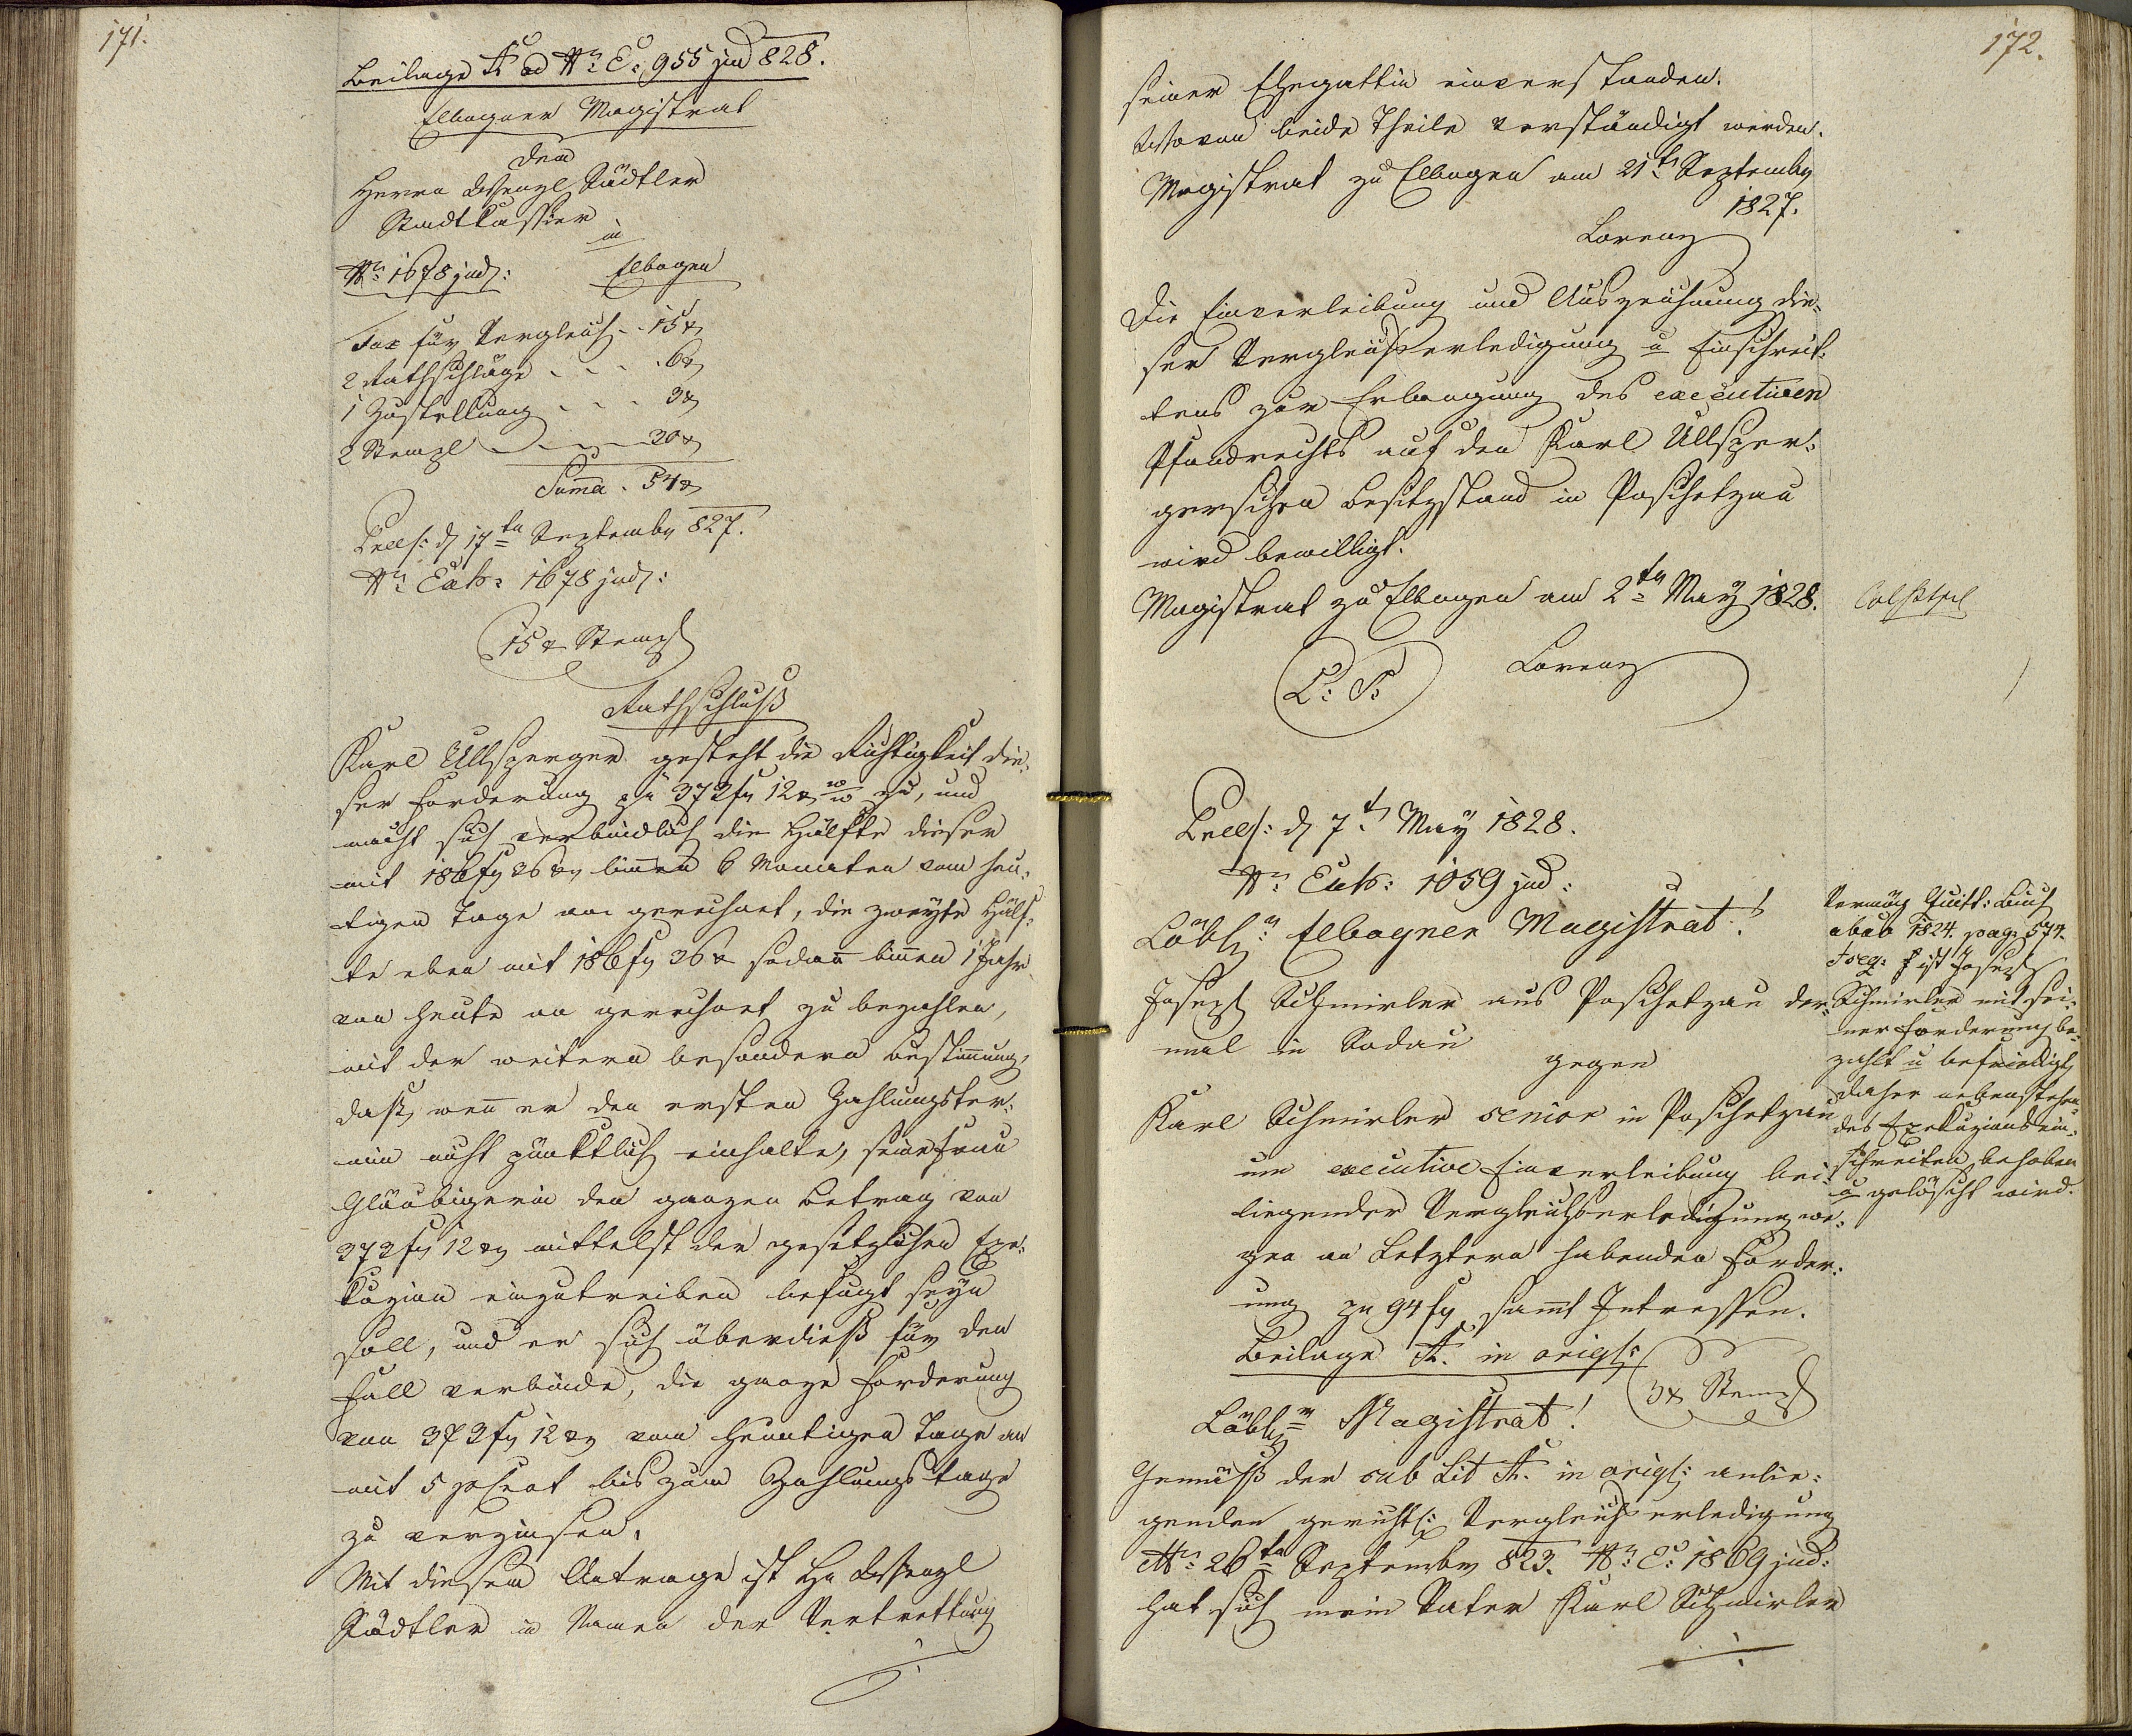 171.
Beilage A ad Nr. E: 955 jud 828.
Elbogner Magistrat
dem
Herrn Wenzl Südtler
Stadtkassier
in
Nr. 1678 jud: Elbogen
Tax für Vergleich . . 15 x
2 Rathschläge . . . . 6 x
1 Zustellung . . . 3 x
2 Stempl 30 x
Suma . 54 x
Präs: d 17ten September 827.
Nr. Exh: 1678 jud:
15 x Stempl
Rathschluß
Karl Ullsperger gesteht die Richtigkeit die-
ser Forderung zu 373 fl 12 x WW zu, und
macht sich verbindlich die Hälfte dieser
mit 186 fl 36 x binnen 6 Monaten vom heu-
tigen Tage an gerechnet, die zweyte Hälf-
te eben mit 186 fl 36 x sodann binnen 1 Jahr
von heute an gerechnet zu bezahlen,
mit der weitern besondern Bestimmung,
daß, wenn er den ersten Zahlungster-
min nicht pünktlich einhalte, seine Frau
Gläubigerin den ganzen Betrag von
373 fl 12 x mittelst der gesetzlichen Exe-
kuzion einzutreiben befugt seyn
soll, und er sich überdieß für den
Fall verbinde, die ganze Forderung
von 373 fl 12 x vom heutigen Tage an
mit 5 pCent bis zum Zahlungstage
zu verzinsen.
Mit diesem Antrage ist Hr Wenzl
Südtler in Namen der Vertrettung
172.
seiner Ehegattin einverstanden.
Wovon beide Theile verständigt werden.
Magistrat zu Elbogen am 21t September
1827.
Lorenz
Die Einverleibung und Auszeichnung die-
ser Vergleichserledigung u Einschrei-
tens zur Erlangung des executiven
Pfandrechts auf den Karl Ullsper-
gerschen Besitzstand in Poschetzau
wird bewilligt.
Magistrat zu Elbogen am 2ten May 1828.
L: S.
Lorenz
Präs: d 7t May 1828.
Nr. Exh: 1059 jud:
Löbl: Elbogner Magistrat!
Joseph Schmirler aus Poschetzau der-
mal in Sodau
gegen
Karl Schmirler senior in Poschetzau
um executive Einverleibung bei-
liegender Vergleichserledigung we-
gen an Letztern habenden Forder-
ung zu 94 fl sammt Intressen.
Beilage A. in origl:
3 x Stempl
Löbl: Magistrat!
Gemäß der sub Lit A. in origl: anlie-
genden gerichtl: Vergleichserledigung
26ten September 823. Nr. E: 1869 jud:
hat sich mein Vater Karl Schmirler
Vermög Quitt: Buch
abab 1824. pag 574.
ist Joseph
Schmirler mit sei-
ner Forderung be-
zahlt u befriedigt
daher nebenstehen-
des Exekuzionsein-
schreiten behoben
u gelöscht wird.